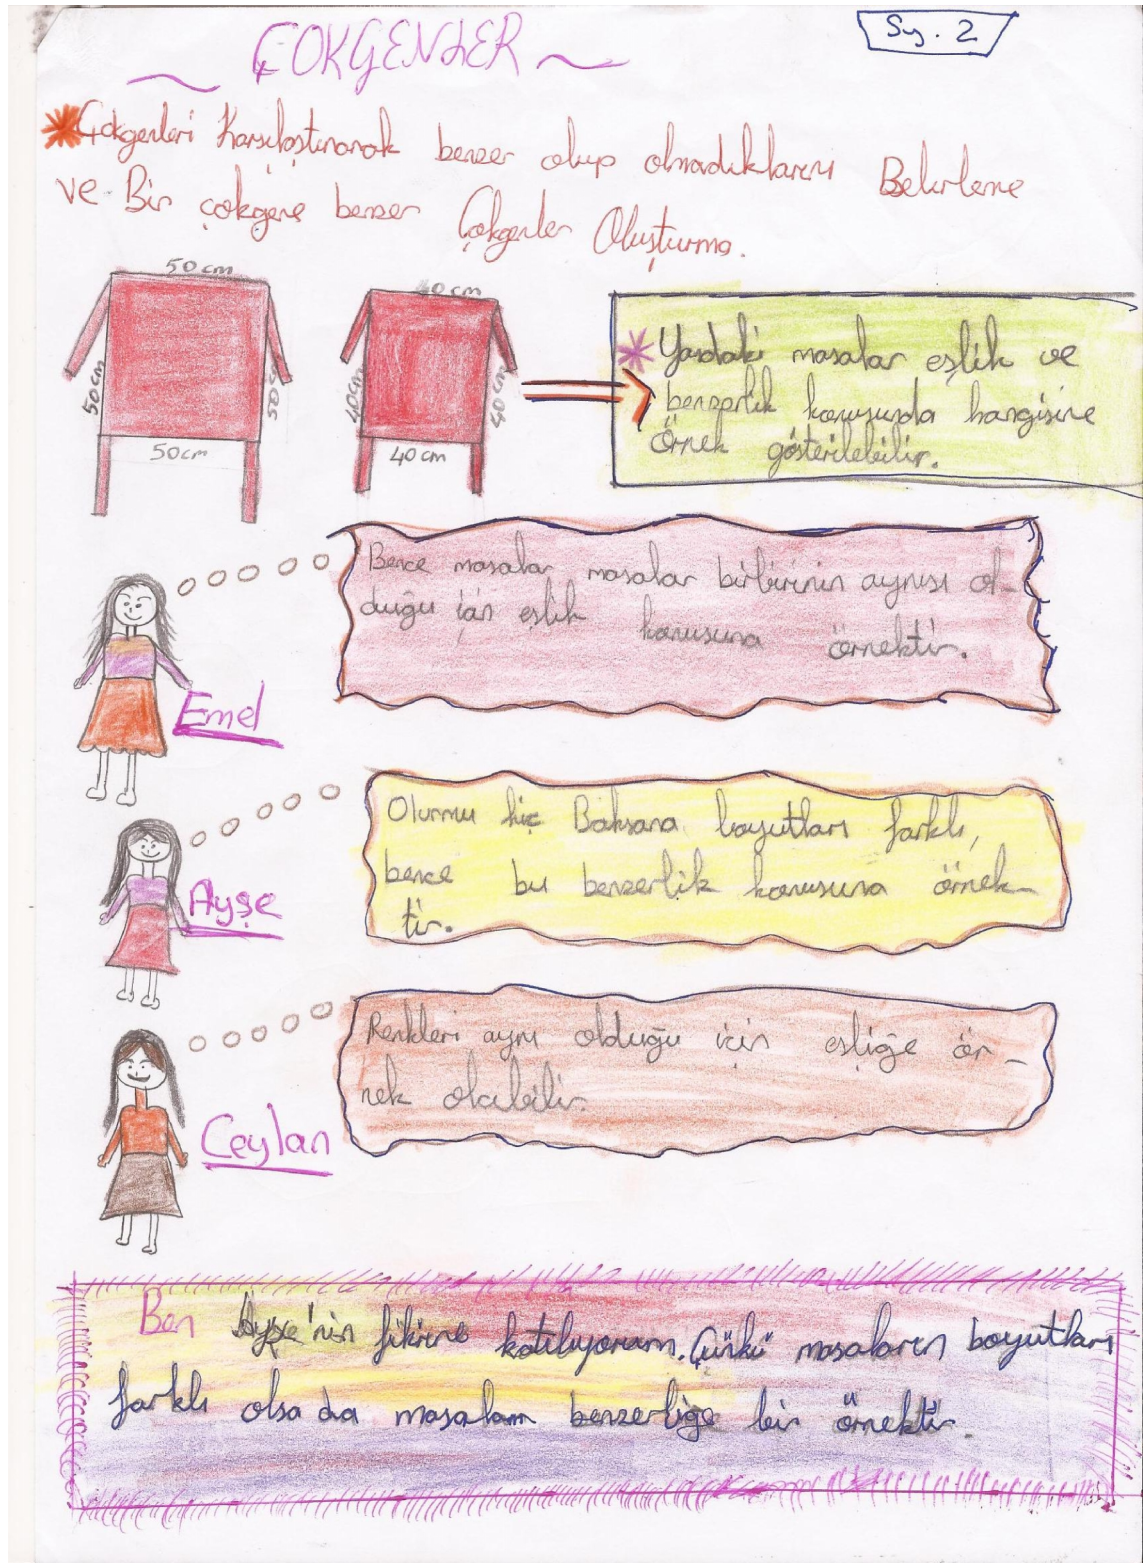 ÇOKGENLER
Sy. 2
Çokgenleri Karşılaştırarak benzer olup olmadıklarını Belirleme
ve Bir çokgene benzer Çokgenler Oluşturma.
50 cm
50cm
50cm
50cm
40 cm
40cm
40cm
40cm
Yandaki masalar eşlik ve
benzerlik konusunda hangisine
Örnek gösterilebilir.
Bence masalar masalar birbirinin aynısı ol-
duğu için eşlik konusuna örnektir.
Emel
Olurmu hiç Baksana boyutları farklı,
bence bu benzerlik konusuna örnek-
tir.
Ayşe
Renkleri aynı olduğu için eşliğe ör-
nek olabilir.
Ceylan
Ben Ayşe'nin fikrine katılıyorum. Çünkü masaların boyutları
farklı olsa da masalam benzerliğe bir örnektir.